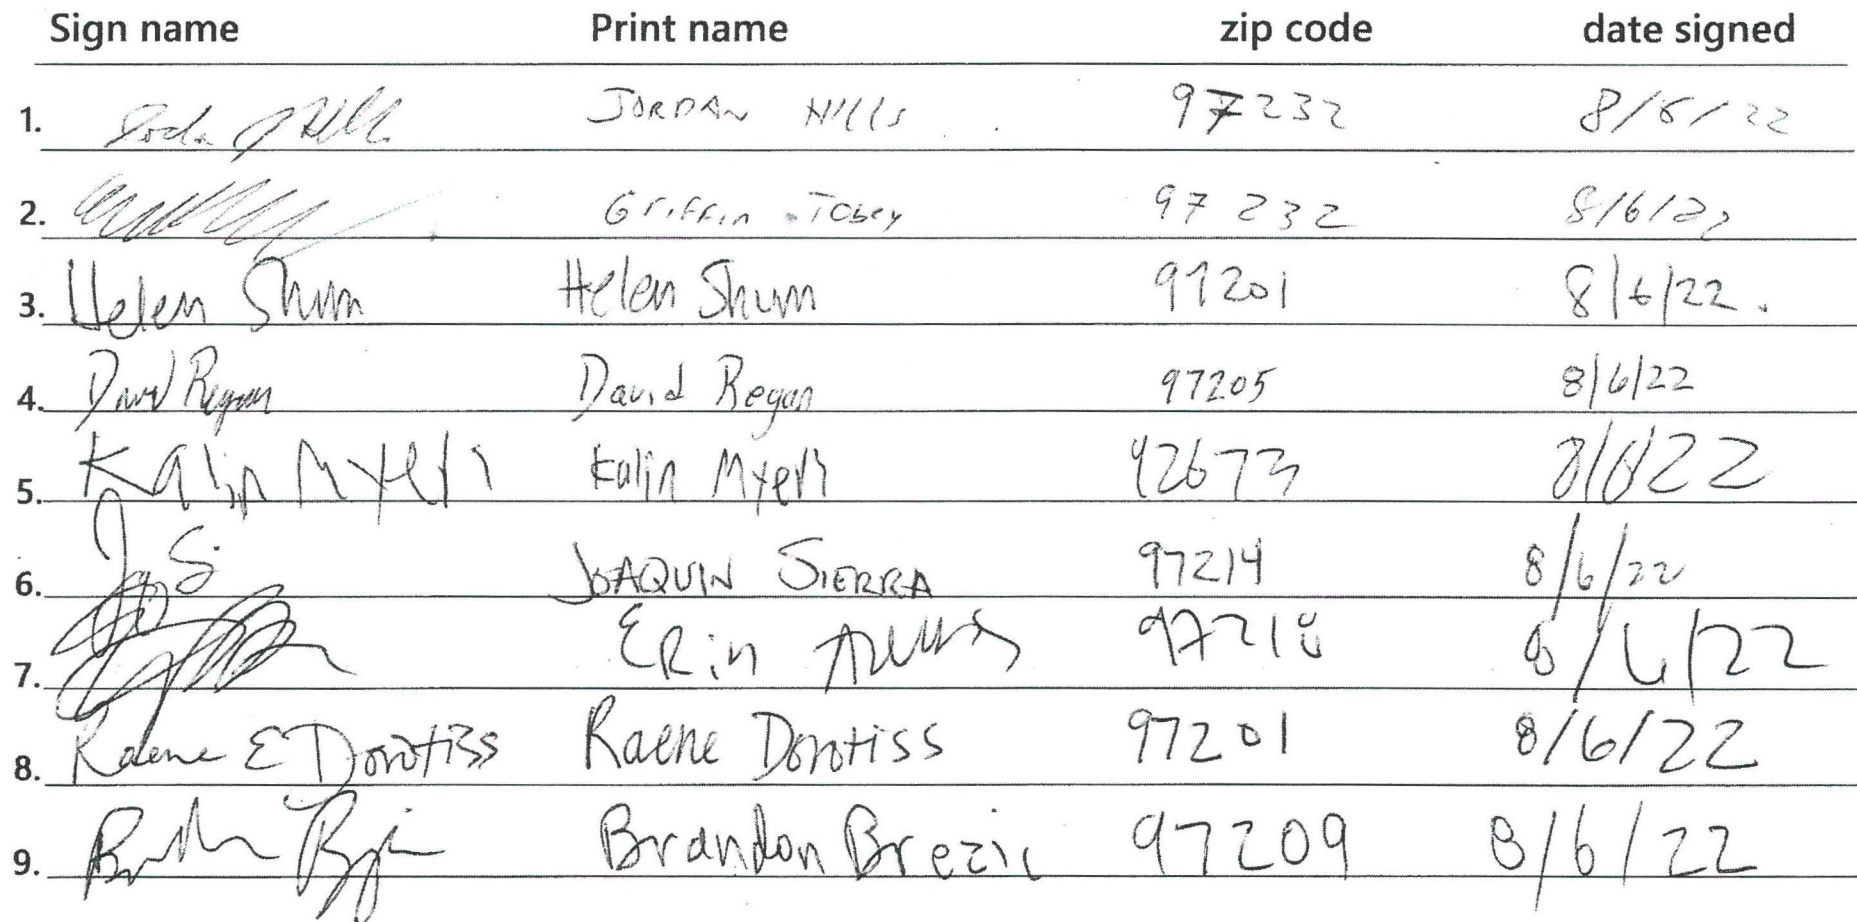 Sign name Print name zip code date signed
1. JORDAN HILLS 97232 8/6/22
2. Griffin Tobey 97 232 8/6/22
3. Helen Shum Helen Shum 97201 8/6/22.
4. David Regan David Regan 97205 8/6/22
5. Kalin Myers Kalin Myers 92673 8/6/22
6. JOAQUIN SIERRA 97214 8/6/22
7. ERin 97218 8/6/22
8. Raene E Dorotiss Raene Dorotiss 97201 8/6/22
9. Brandon Brezic 97209 8/6/22